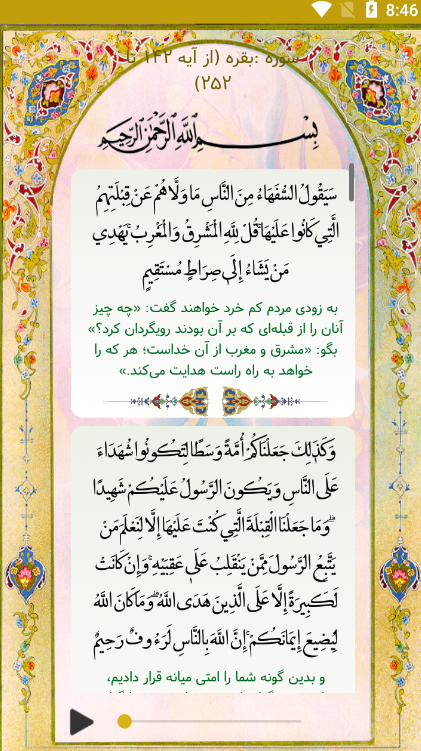 8:46
سوره :بقره (از آیه ۱۴۲ تا
۲۵۲)
بِسْمِ اللَّهِ الرَّحْمَٰنِ الرَّحِيمِ
سَيَقُولُ السُّفَهَاءُ مِنَ النَّاسِ مَا وَلَّاهُمْ عَنْ قِبْلَتِهِمُ
الَّتِي كَانُوا عَلَيْهَا ۚ قُلْ لِلَّهِ الْمَشْرِقُ وَالْمَغْرِبُ ۚ يَهْدِي
مَنْ يَشَاءُ إِلَىٰ صِرَاطٍ مُسْتَقِيمٍ
به زودی مردم کم خرد خواهند گفت: «چه چیز
آنان را از قبله‌ای که بر آن بودند رویگردان کرد؟»
بگو: «مشرق و مغرب از آن خداست؛ هر که را
خواهد به راه راست هدایت می‌کند.»
وَكَذَٰلِكَ جَعَلْنَاكُمْ أُمَّةً وَسَطًا لِتَكُونُوا شُهَدَاءَ
عَلَى النَّاسِ وَيَكُونَ الرَّسُولُ عَلَيْكُمْ شَهِيدًا
ۗ وَمَا جَعَلْنَا الْقِبْلَةَ الَّتِي كُنْتَ عَلَيْهَا إِلَّا لِنَعْلَمَ مَنْ
يَتَّبِعُ الرَّسُولَ مِمَّنْ يَنْقَلِبُ عَلَىٰ عَقِبَيْهِ ۚ وَإِنْ كَانَتْ
لَكَبِيرَةً إِلَّا عَلَى الَّذِينَ هَدَى اللَّهُ ۗ وَمَا كَانَ اللَّهُ
لِيُضِيعَ إِيمَانَكُمْ ۚ إِنَّ اللَّهَ بِالنَّاسِ لَرَءُوفٌ رَحِيمٌ
و بدین گونه شما را امتی میانه قرار دادیم،